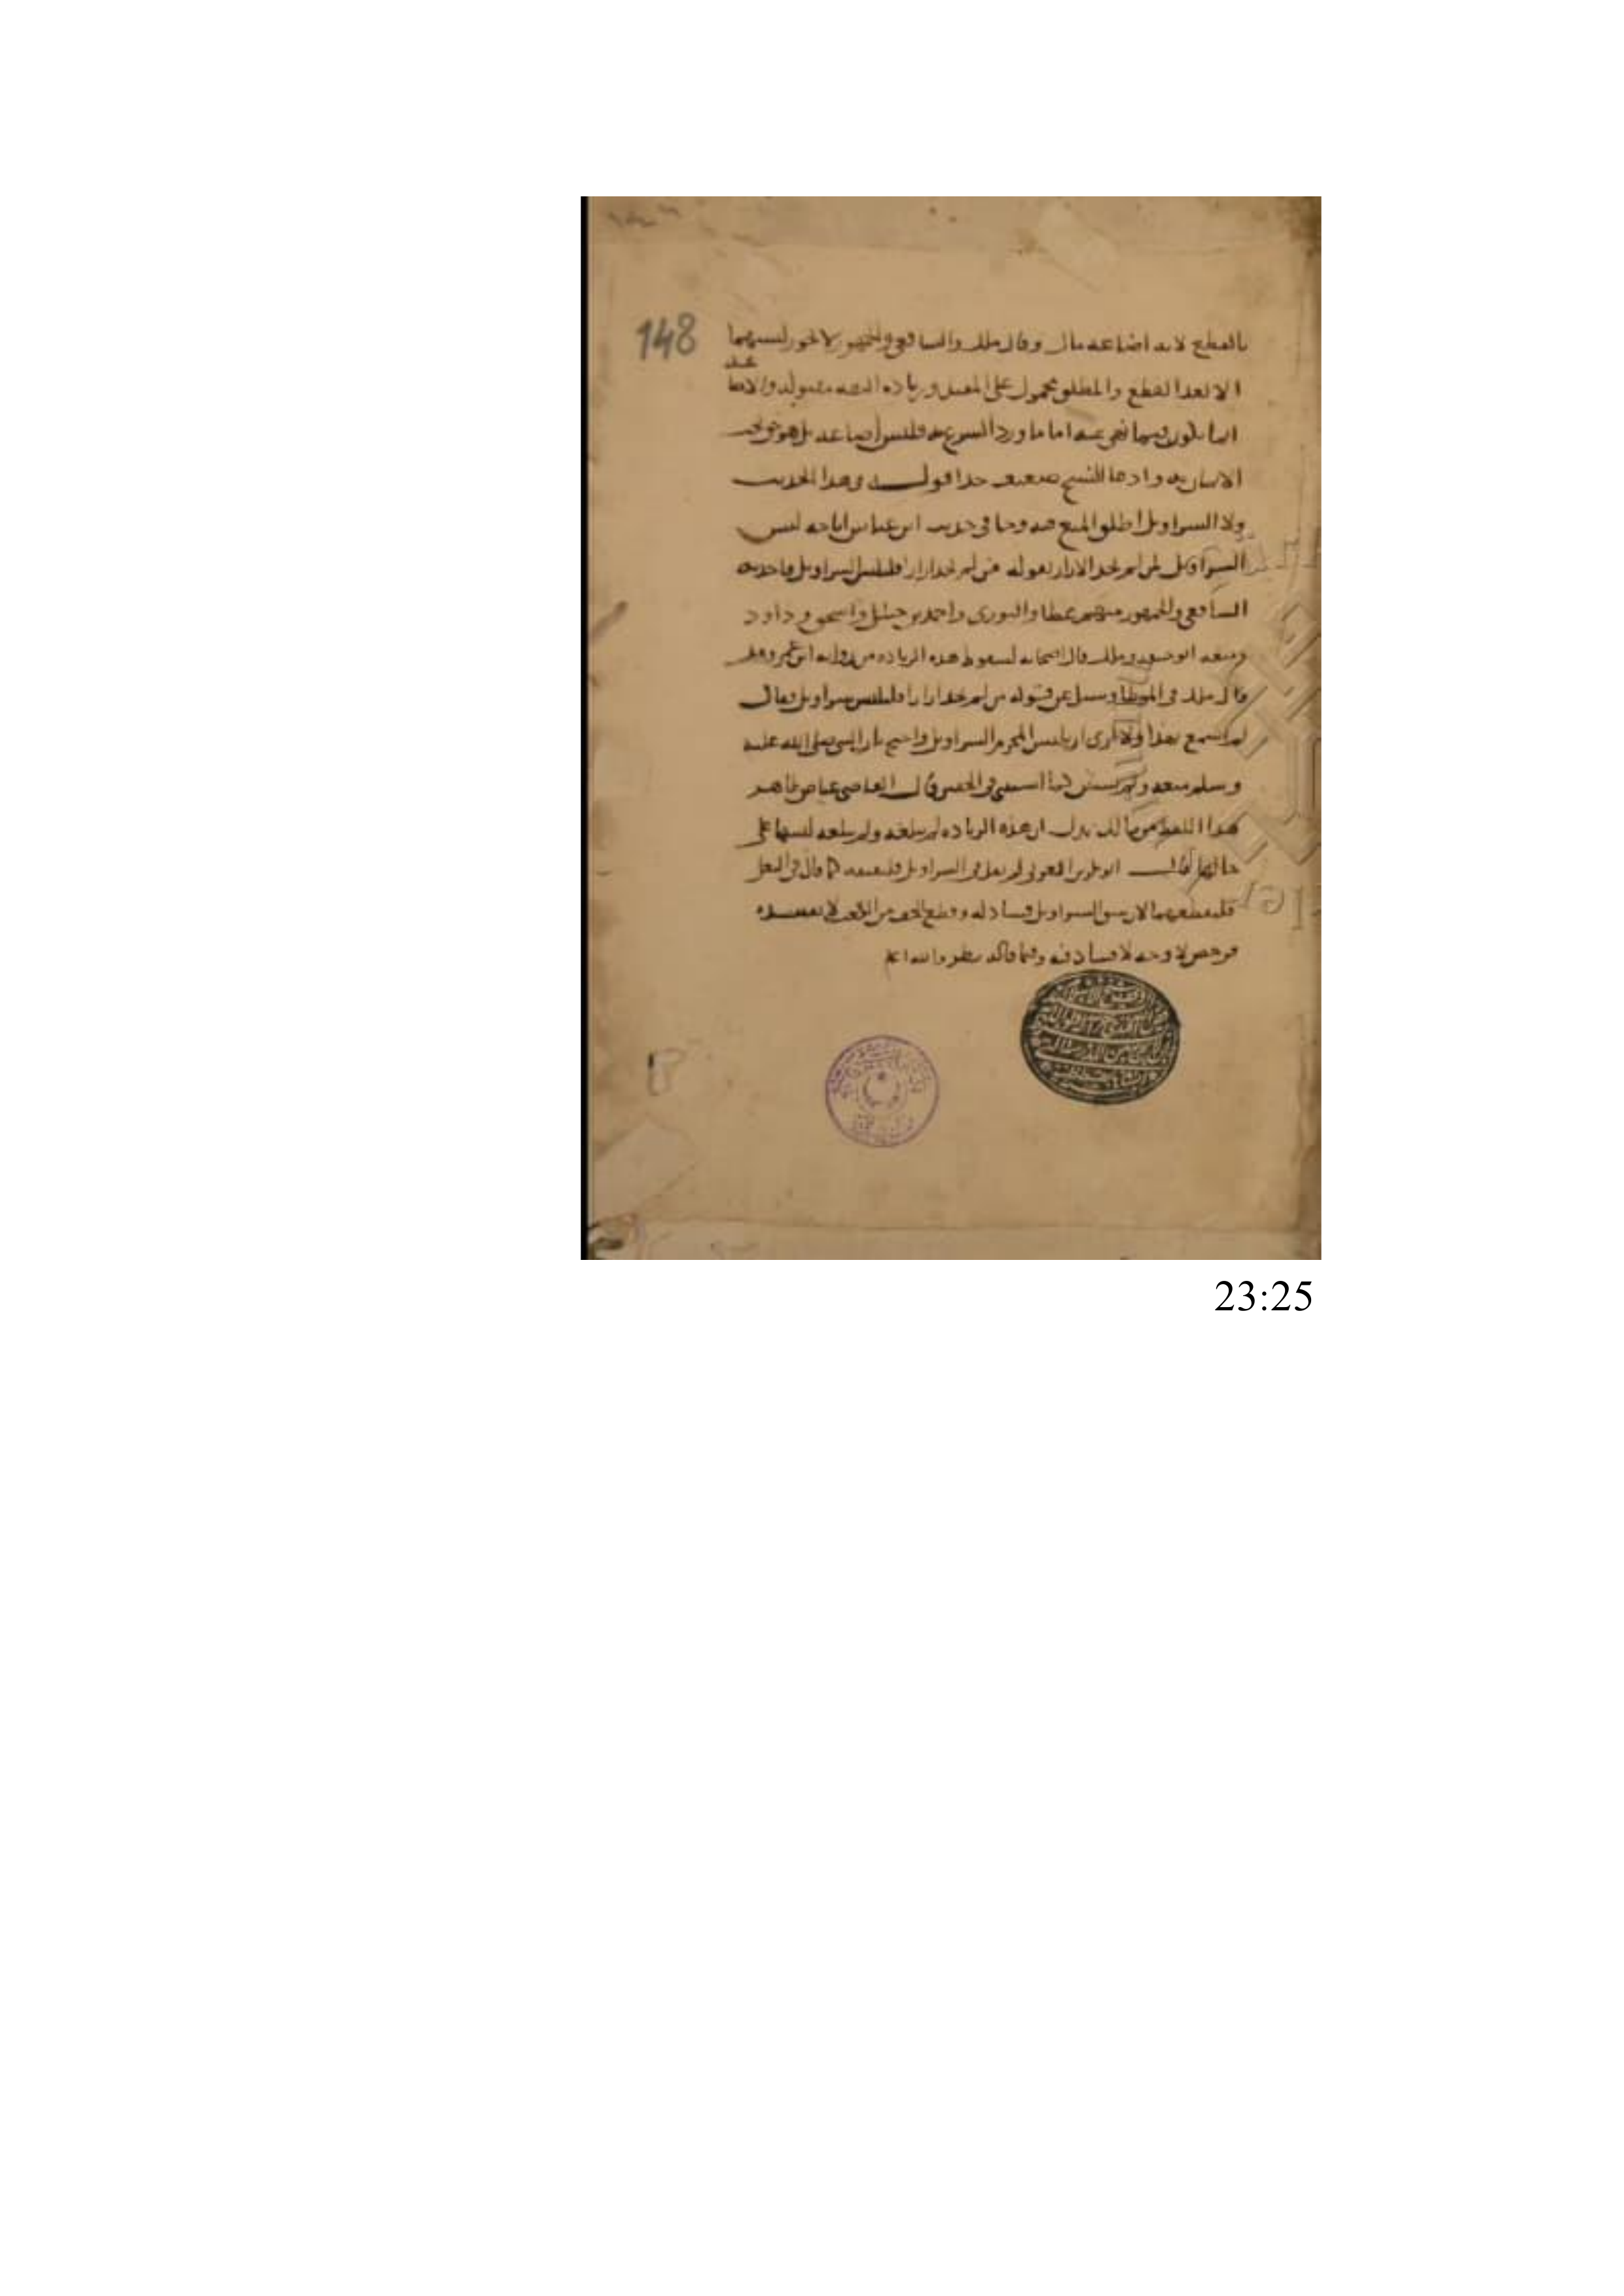 148
بالقطع لانه اضاعه مال وقال ملك والشافعي والجمهور لا يجوز لبسهما
الا بعد القطع والمطلق محمول على المقيد وزياده الثقه مقبوله والاضاعه
انما تكون فيما نهي عنه اما ما ورد الشرع به فليس اضاعه بل هو حق يجب
الاتيان به وادعا النسخ ضعيف جدا قوله في هذا الحديث
ولا السراويل اطلق المنع هنا وجا في حديث ابن عباس اباحه لبس
السراويل لمن لم يجد الازار بقوله من لم يجد ازارا فليلبس السراويل فاخذ به
الشافعي والجمهور منهم عطا والثوري واحمد بن حنبل واسحق وداود
ومنعه ابو حنيفه وملك قال اصحابه لسقوط هذه الزياده من روايه ابن عمر وقد
قال ملك في الموطا وسيل عن قوله من لم يجد ازارا فليلبس سراويل فقال
لم اسمع بهذا ولا ارى ان يلبس المحرم السراويل واحتج بان النبي صلى الله عليه
وسلم منعه ولم يستثن كما استثنى في الخفين قال القاضي عياض ظاهر
هذا اللفظ من مالك يدل ان هذه الزياده لم تبلغه ولم يبلغه لبسها على
حالها قال ابو بكر لم يقل في السراويل فليشقه كما قال في النعل
فليقطعهما لان شق السراويل فساد له وقطع الخف من الكعب لا يفسده
فرخص لا وجه لا فساد فيه وفيما قاله نظر والله اعلم
23:25